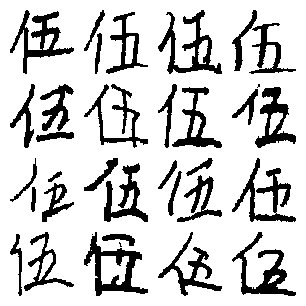 伍伍伍伍
伍伍伍伍
伍伍伍伍
伍伍伍伍